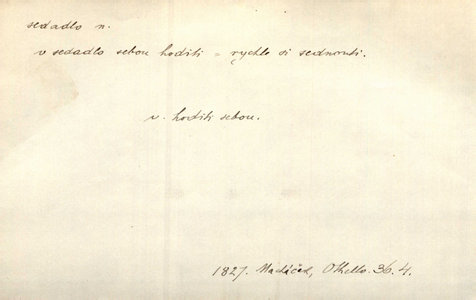 sedadlo n.
v sedadlo sebou hoditi = rychle si sednouti.
v. hoditi sebou.
1827. Othello. 36. 4.